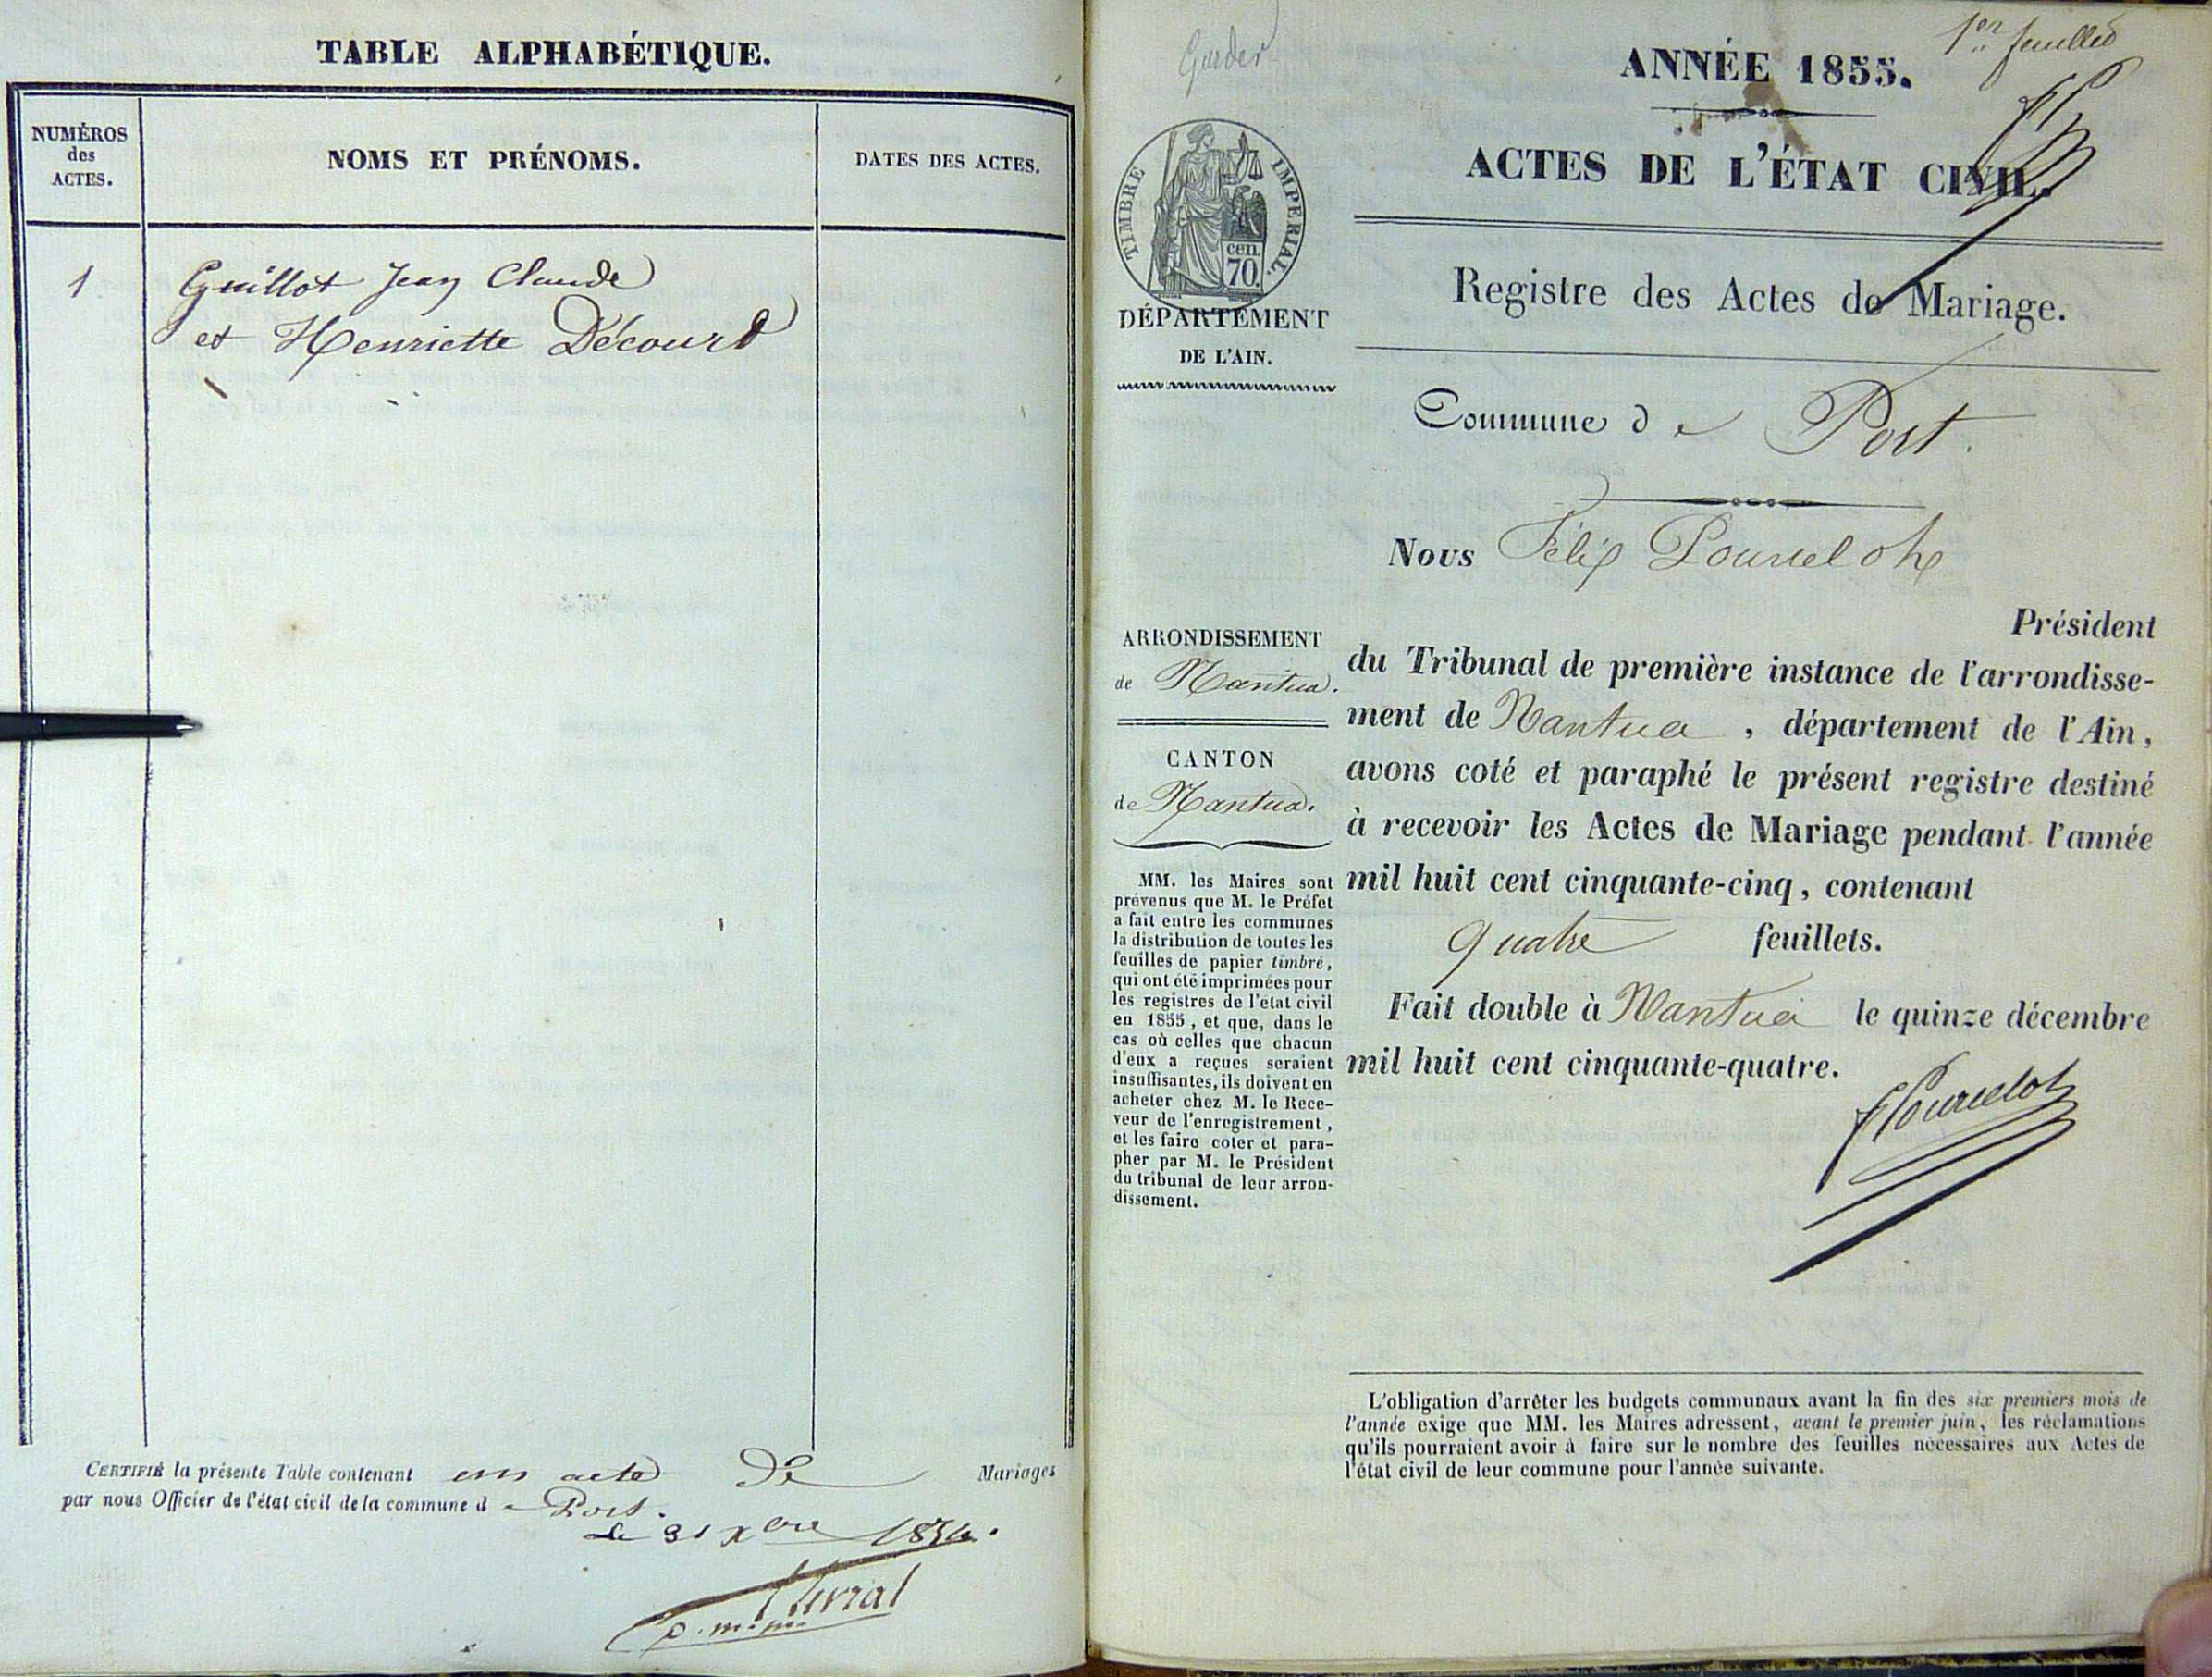 TABLE ALPHABÉTIQUE.
NUMÉROS
des
ACTES.
NOMS ET PRÉNOMS.
DATES DES ACTES.
1 Guillot Jean Claude
et Henriette Décourd
CERTIFIÉ la présente Table contenant un acte de Mariages
par nous Officier de l'état civil de la commune d e Port.
Le 31 Xbre 1854.
Garder
1er feuillet
ANNÉE 1855.
ACTES DE L'ÉTAT CIVIL.
TIMBRE IMPERIAL.
cen.
70.
Registre des Actes de Mariage.
DÉPARTEMENT
DE L'AIN.
Commune d e Port.
Nous Félix Pourcelot
Président
du Tribunal de première instance de l'arrondisse-
ment de Nantua, département de l'Ain,
avons coté et paraphé le présent registre destiné
à recevoir les Actes de Mariage pendant l'année
mil huit cent cinquante-cinq, contenant
quatre feuillets.
Fait double à Nantua le quinze décembre
mil huit cent cinquante-quatre.
FPourcelot
ARRONDISSEMENT
de Nantua.
CANTON
de Nantua.
MM. les Maires sont
prévenus que M. le Préfet
a fait entre les communes
la distribution de toutes les
feuilles de papier timbré,
qui ont été imprimées pour
les registres de l'état civil
en 1855, et que, dans le
cas où celles que chacun
d'eux a reçues seraient
insuffisantes, ils doivent en
acheter chez M. le Rece-
veur de l'enregistrement,
et les faire coter et para-
pher par M. le Président
du tribunal de leur arron-
dissement.
L'obligation d'arrêter les budgets communaux avant la fin des six premiers mois de
l'année exige que MM. les Maires adressent, avant le premier juin, les réclamations
qu'ils pourraient avoir à faire sur le nombre des feuilles nécessaires aux Actes de
l'état civil de leur commune pour l'année suivante.